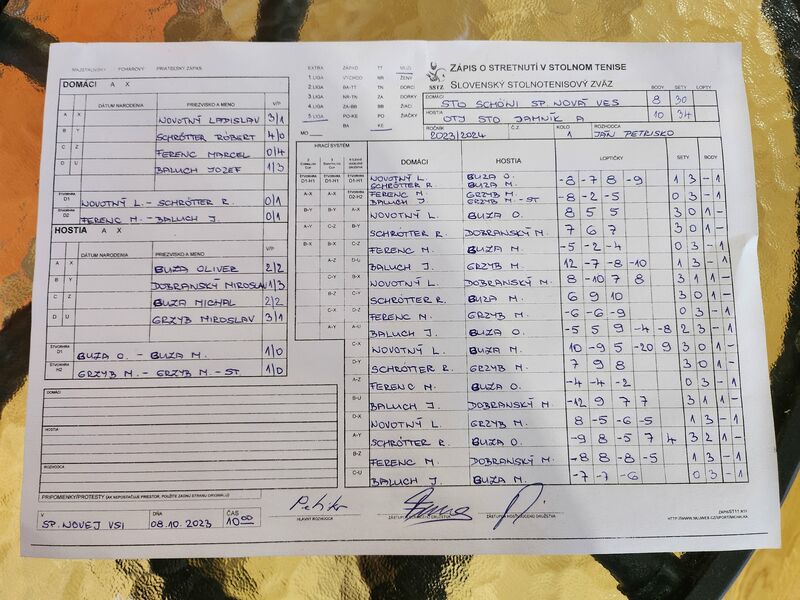 MAJSTROVSKÝ POHÁROVÝ PRIATEĽSKÝ ZÁPAS
DOMÁCI A X
DÁTUM NARODENIA PRIEZVISKO A MENO V/P
A X NOVOTNÝ LADISLAV 3/1
B Y SCHRÖTTER RÓBERT 4/0
C Z FERENC MARCEL 0/4
D U BALUCH JOZEF 1/3
ŠTVORHRA D1 NOVOTNÝ L. - SCHRÖTTER R. 0/1
ŠTVORHRA D2 FERENC M. - BALUCH J. 0/1
HOSTIA A X
DÁTUM NARODENIA PRIEZVISKO A MENO V/P
A X BUZA OLIVER 2/2
B Y DOBRANSKÝ MIROSLAV 1/3
C Z BUZA MICHAL 2/2
D U GRZYB MIROSLAV 3/1
ŠTVORHRA D1 BUZA O. - BUZA M. 1/0
ŠTVORHRA H2 GRZYB M. - GRZYB M. - ST. 1/0
DOMÁCI
HOSTIA
ROZHODCA
PRIPOMIENKY/PROTESTY (AK NEPOSTAČUJE PRIESTOR, POUŽITE ZADNÚ STRANU ORIGINÁLU)
V SP. NOVEJ VSI DŇA 08.10.2023 ČAS 10:00
EXTRA ZÁPAD TT MUŽI
1 LIGA VÝCHOD NR ŽENY
2 LIGA BA-TT TN DORCI
3 LIGA NR-TN ZA DORKY
4 LIGA ZA-BB BB ŽIACI
5 LIGA PO-KE PO ŽIAČKY
MO BA KE
SSTZ
ZÁPIS O STRETNUTÍ V STOLNOM TENISE
SLOVENSKÝ STOLNOTENISOVÝ ZVÄZ
BODY SETY LOPTY
DOMÁCI STO SCHÖNI SP. NOVÁ VES 8 30
HOSTIA OTJ STO JAMNÍK A 10 34
ROČNÍK 2023/2024 Č.Z. KOLO 1 ROZHODCA JÁN PETRISKO
HRACÍ SYSTÉM
DOMÁCI HOSTIA LOPTIČKY SETY BODY
NOVOTNÝ L. SCHRÖTTER R. BUZA O. BUZA M. -8 -7 8 -9 1 3 - 1
FERENC M. BALUCH J. GRZYB M. GRZYB M. - ST -8 -2 -5 0 3 - 1
A-X NOVOTNÝ L. BUZA O. 8 5 5 3 0 1 -
B-Y SCHRÖTTER R. DOBRANSKÝ M. 7 6 7 3 0 1 -
C-Z FERENC M. BUZA M. -5 -2 -4 0 3 - 1
D-U BALUCH J. GRZYB M. 12 -7 -8 -10 1 3 - 1
NOVOTNÝ L. DOBRANSKÝ M. 8 -10 7 8 3 1 1 -
SCHRÖTTER R. BUZA M. 6 9 10 3 0 1 -
FERENC M. GRZYB M. -6 -6 -9 0 3 - 1
BALUCH J. BUZA O. -5 5 9 -4 -8 2 3 - 1
C-X NOVOTNÝ L. BUZA M. 10 -9 5 -20 9 3 2 1 -
D-Y SCHRÖTTER R. GRZYB M. 7 9 8 3 0 1 -
A-Z FERENC M. BUZA O. -4 -4 -2 0 3 - 1
B-U BALUCH J. DOBRANSKÝ M. -12 9 7 7 3 1 1 -
D-X NOVOTNÝ L. GRZYB M. 8 -5 -6 -5 1 3 - 1
A-Y SCHRÖTTER R. BUZA O. -9 8 -5 7 4 3 2 1 -
B-Z FERENC M. DOBRANSKÝ M. -8 8 -8 -5 1 3 - 1
C-U BALUCH J. BUZA M. -7 -7 -6 0 3 - 1
HLAVNÝ ROZHODCA
ZÁSTUPCA DOMÁCEHO DRUŽSTVA
ZÁSTUPCA HOSŤUJÚCEHO DRUŽSTVA